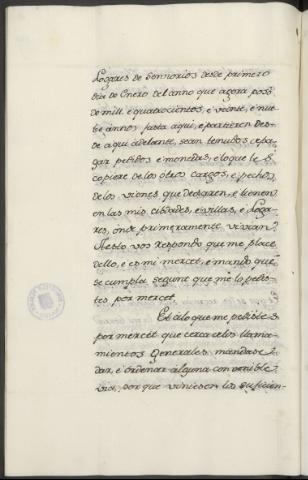 Logares de Sennorios desde primero
dia de Enero del anno que agora pasó
de mill e quatrocientos, e veinte, e nue
be annos fasta aqui, e partieren des-
de aqui adelante, sean tenudos, e pa-
gar pedidos e monedas, e lo que le S
copiere de los otros cargos, e pechos,
de los vienes que dexaren, e tienen
en las mis cibdades, e villas, e Loga-
res, onde primeramente vivian?
A esto vos respondo que me place
dello, e es mi mercet, e mando que
se cumpla segunt que me lo pedis-
tes por mercet.
Es a lo que me pedistes
por mercet que cerca de los llama-
mientos Generales mandase
dar, e ordenar alguna convenible
via, por que viniesen los suficien-